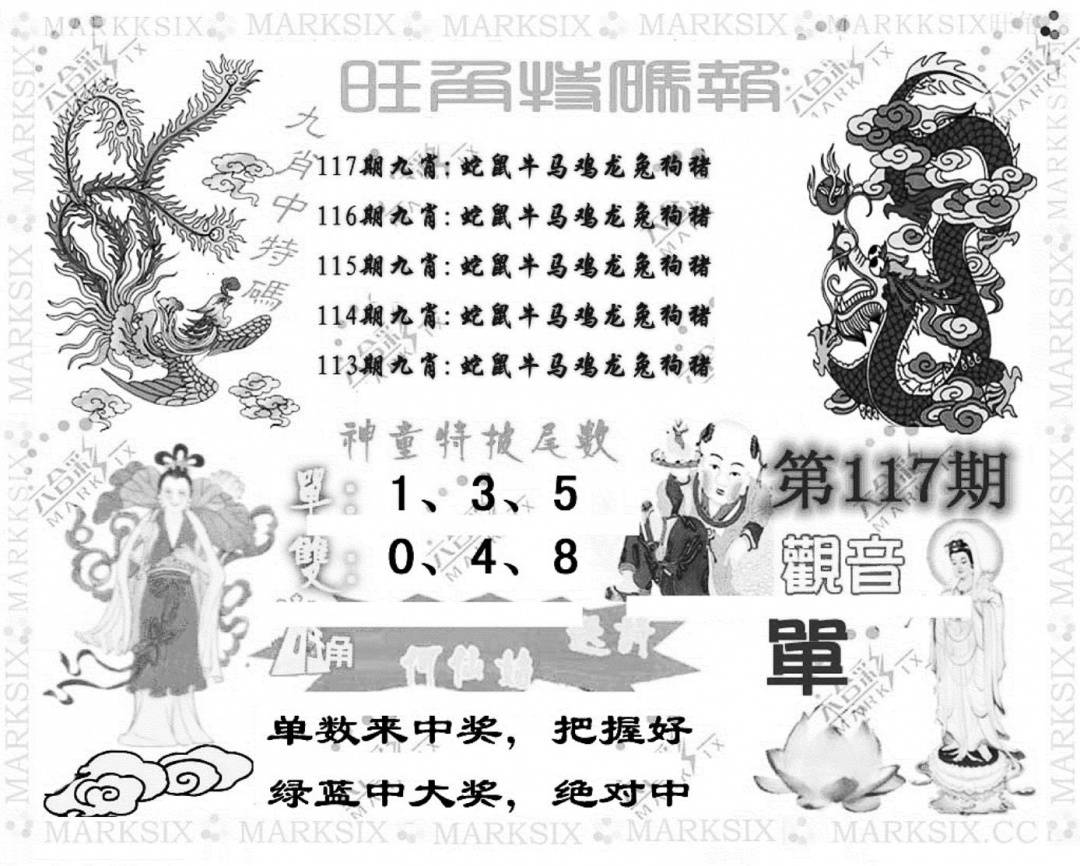 MARKSIX MARKSIX MARKSIX MARKSIX MARKKSIX
旺角特碼報
九肖中特碼
117期九肖:蛇鼠牛马鸡龙兔狗猪
116期九肖:蛇鼠牛马鸡龙兔狗猪
115期九肖:蛇鼠牛马鸡龙兔狗猪
114期九肖:蛇鼠牛马鸡龙兔狗猪
113期九肖:蛇鼠牛马鸡龙兔狗猪
神童特披尾數
單: 1、3、5
雙: 0、4、8
第117期
觀音
單
何仙姑
单数来中奖，把握好
绿蓝中大奖，绝对中
MARKSIX MARKSIX MARKSIX MARKSIX MARKSIX.CC